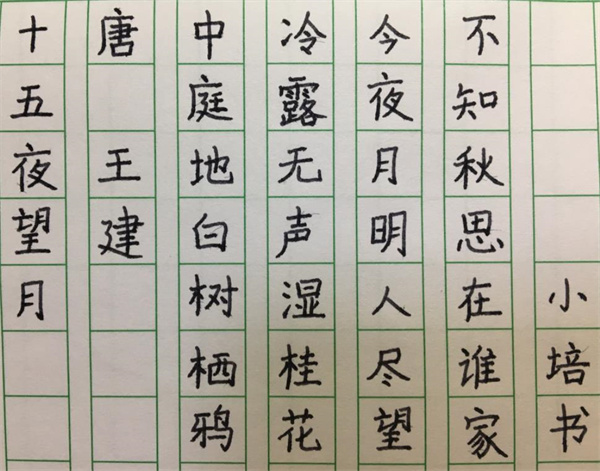 十五夜望月
唐 王建
中庭地白树栖鸦
冷露无声湿桂花
今夜月明人尽望
不知秋思在谁家
小培书